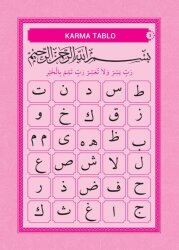 KARMA TABLO
بِسْمِ اللهِ الرَّحْمٰنِ الرَّحِيمِ
رَبِّ يَسِّرْ وَلَا تُعَسِّرْ رَبِّ تَمِّمْ بِالْخَيْرِ
ط س د ن ت
ز ق ك خ و
ب ظ ه ي م
ص لا ل ش
ر ذ ض ف ح
ث غ ا ج